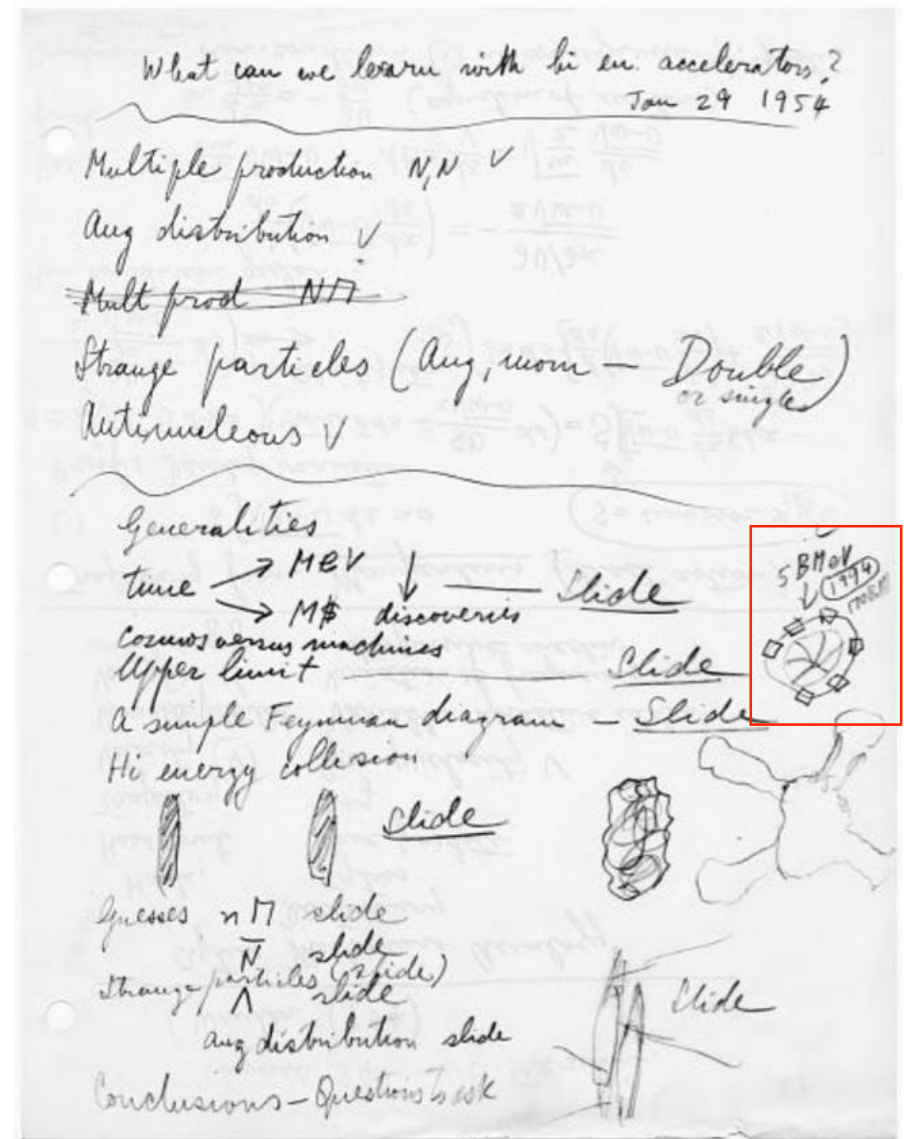 What can we learn with hi en. accelerators?
Jan 29 1954
Multiple production N,N V
Ang distribution V
Mult prod NΠ
Strange particles (Ang, mom — Double)
or single
Antinucleons V
Generalities
time → MeV
→ M$ discoveries Slide
Cozmos versus machines
Upper limit Slide
5 BMeV
1994
A simple Feynman diagram — Slide
Hi energy collision
Slide
Guesses nΠ slide
N̅ slide
Strange particles (slide)
Λ slide
ang distribution slide
Slide
Conclusions — Questions to ask